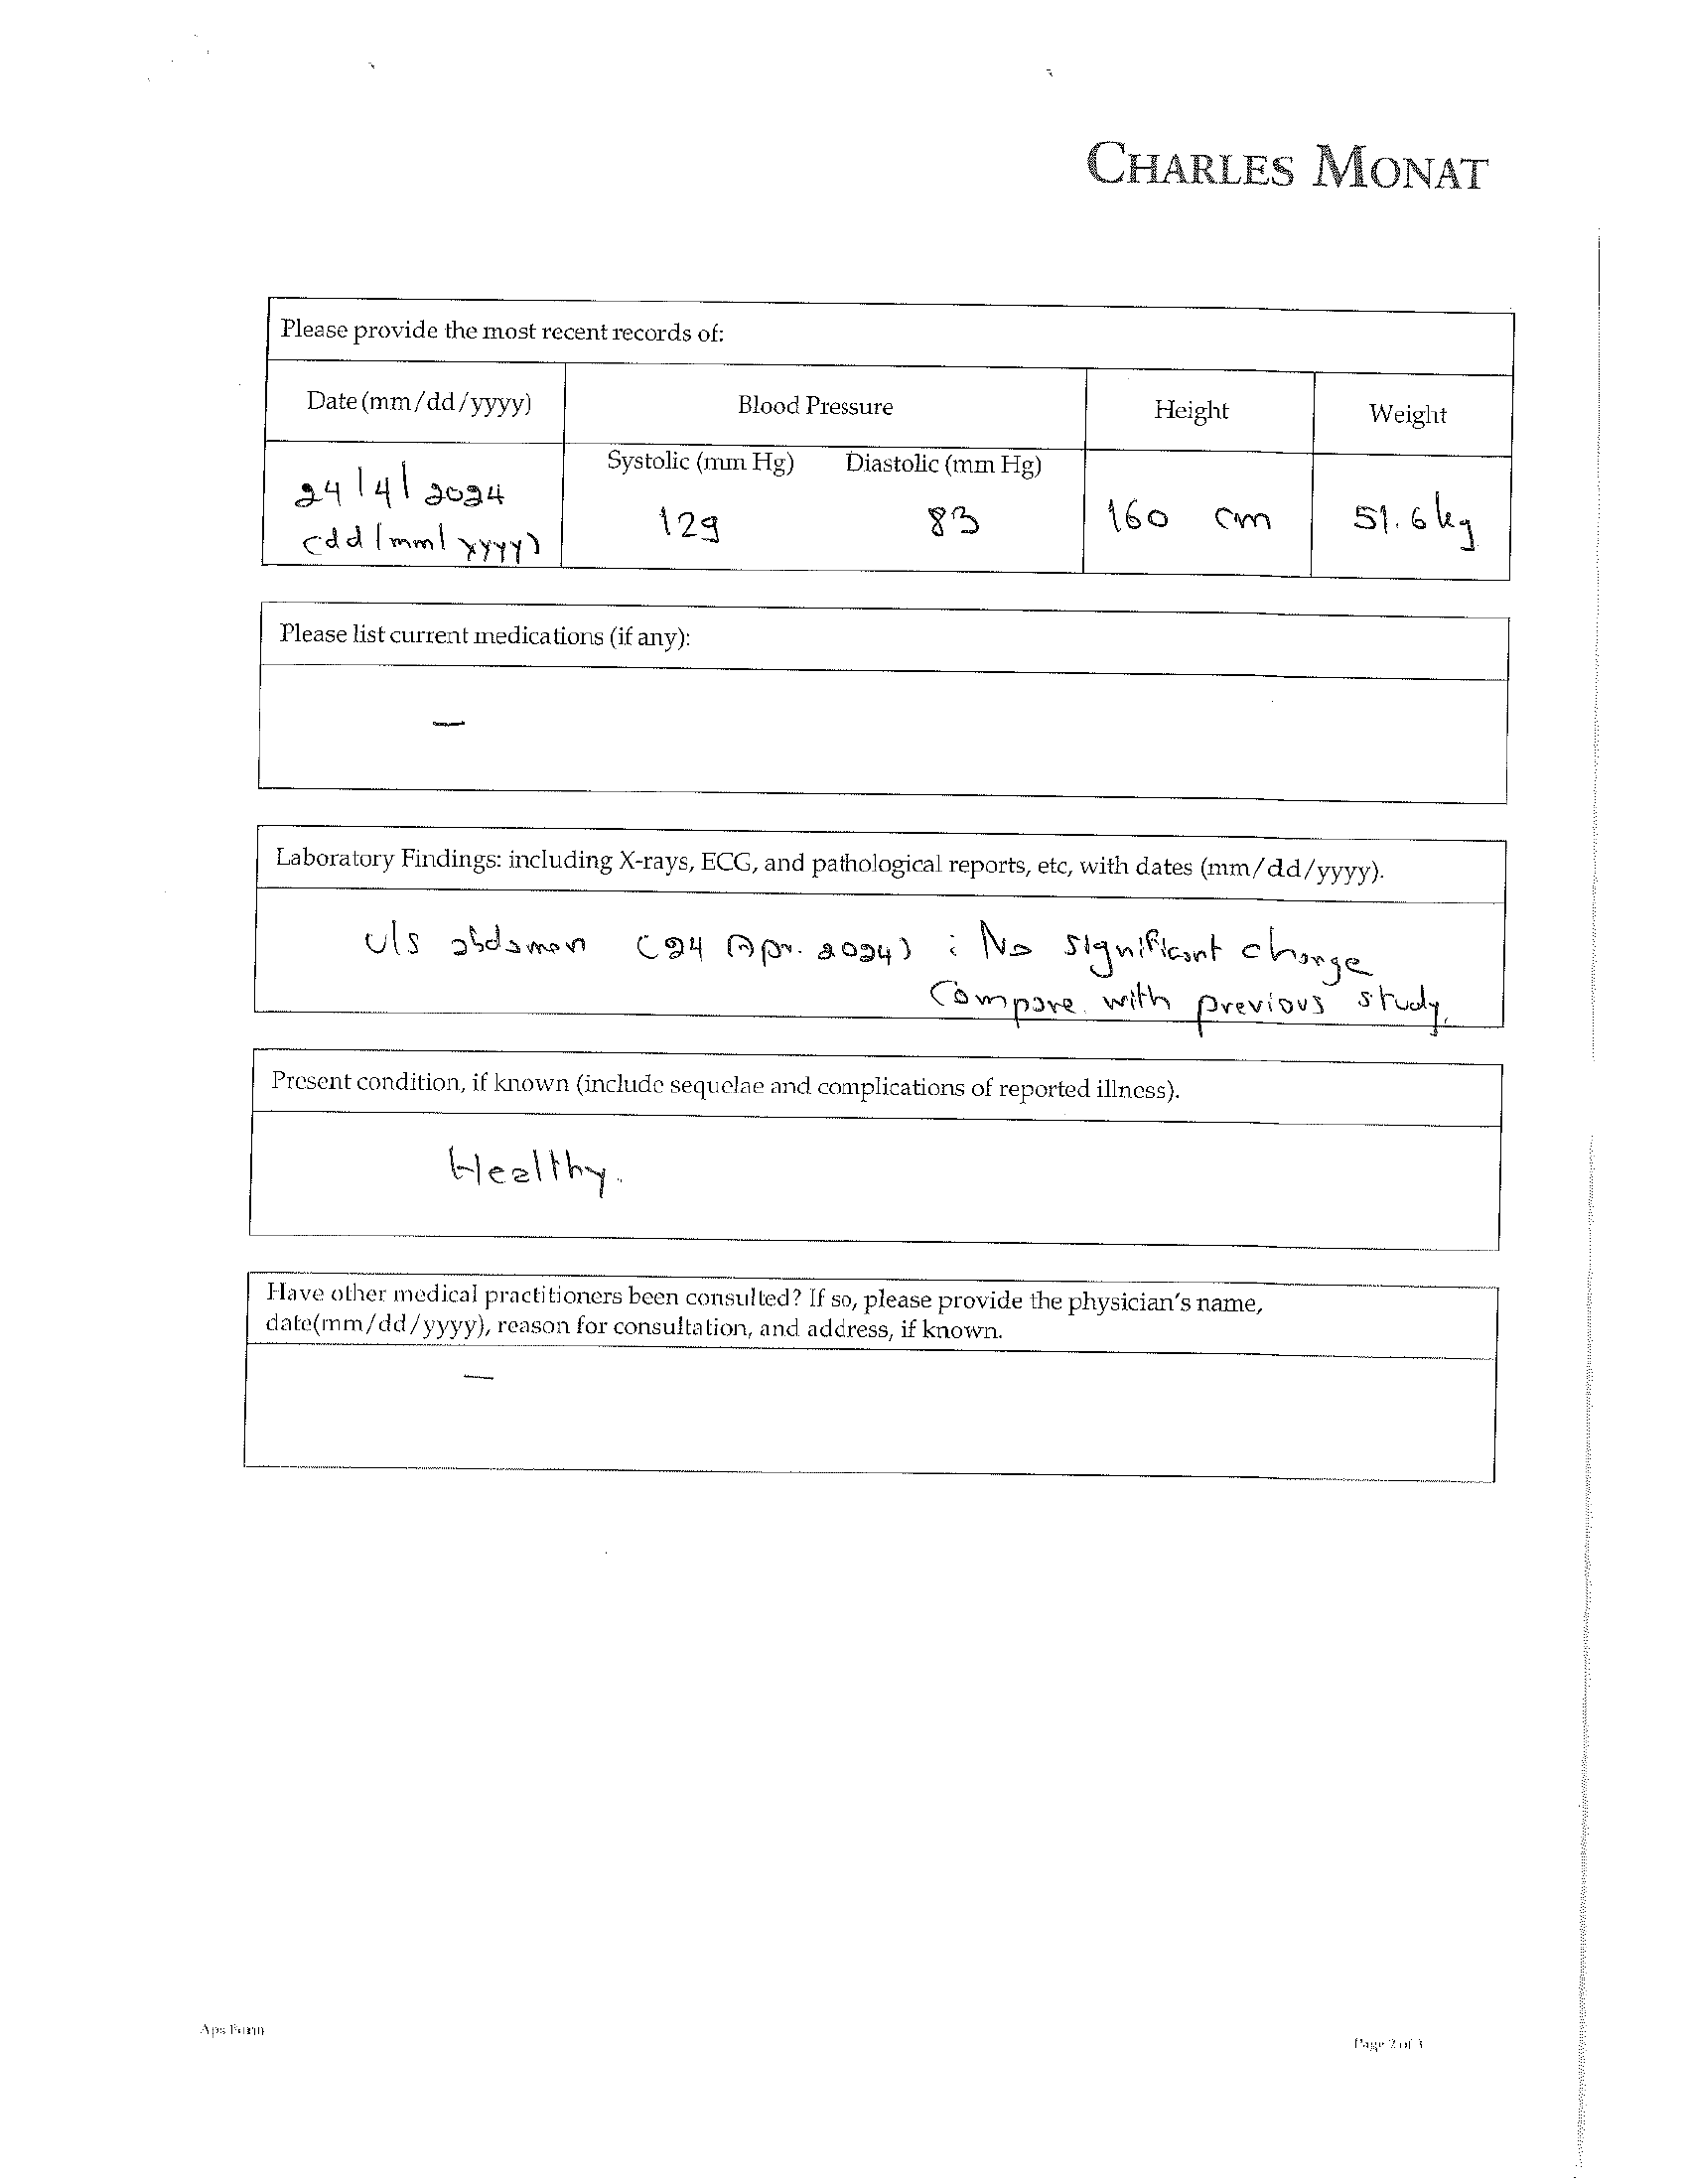 CHARLES MONAT
Please provide the most recent records of:
Date (mm/dd/yyyy) Blood Pressure Height Weight
Systolic (mm Hg) Diastolic (mm Hg)
24/4/2024 129 83 160 cm 51.6 kg
(dd/mm/yyyy)
Please list current medications (if any):
–
Laboratory Findings: including X-rays, ECG, and pathological reports, etc, with dates (mm/dd/yyyy).
U/S abdomen (24 Apr. 2024) : No significant change
Compare with previous study.
Present condition, if known (include sequelae and complications of reported illness).
Healthy.
Have other medical practitioners been consulted? If so, please provide the physician's name,
date(mm/dd/yyyy), reason for consultation, and address, if known.
–
Aps Form
Page 2 of 3